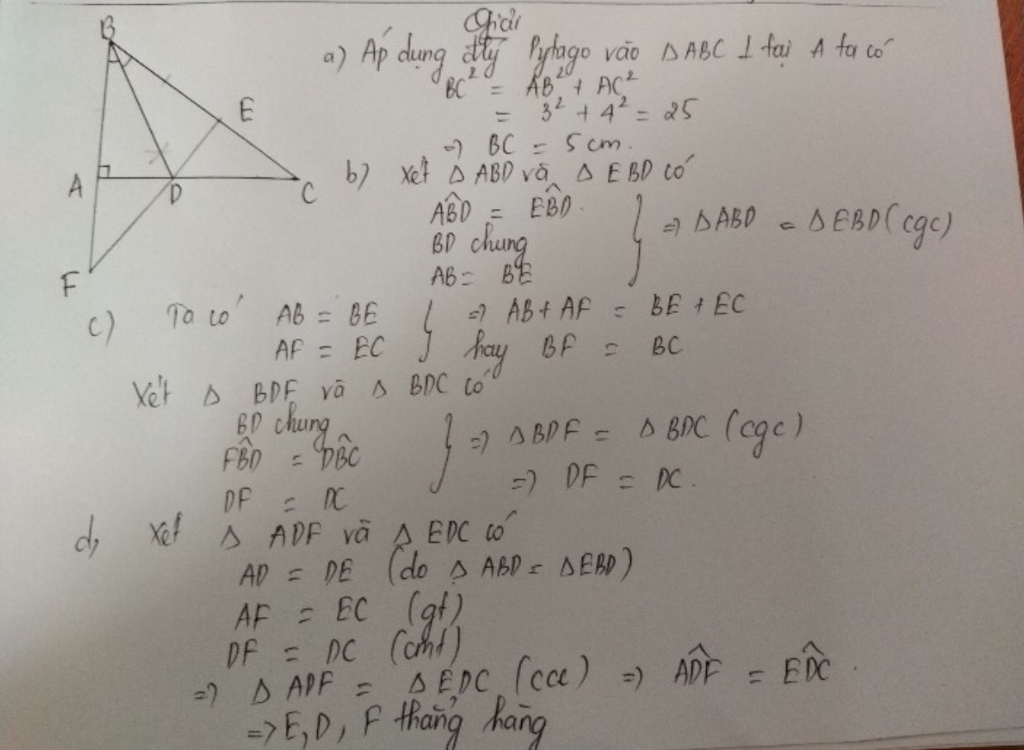 Giải
a) Áp dụng đlý Pytago vào Δ ABC ⊥ tại A ta có
BC² = AB² + AC²
= 3² + 4² = 25
=> BC = 5 cm.
b) Xét Δ ABD và Δ EBD có
ABD̂ = EBD̂.
BD chung
AB = BE
} => Δ ABD = Δ EBD (cgc)
c) Ta có AB = BE } => AB + AF = BE + EC
AF = EC } hay BF = BC
Xét Δ BDF và Δ BDC có
BD chung
FBD̂ = DBĈ
DF = DC
} => Δ BDF = Δ BDC (cgc)
=> DF = DC.
d, Xét Δ ADF và Δ EDC có
AD = DE (do Δ ABD = Δ EBD)
AF = EC (gt)
DF = DC (cmt)
=> Δ ADF = Δ EDC (ccc) => ADF̂ = EDĈ.
=> E, D, F thẳng hàng
B
E
A
D
C
F